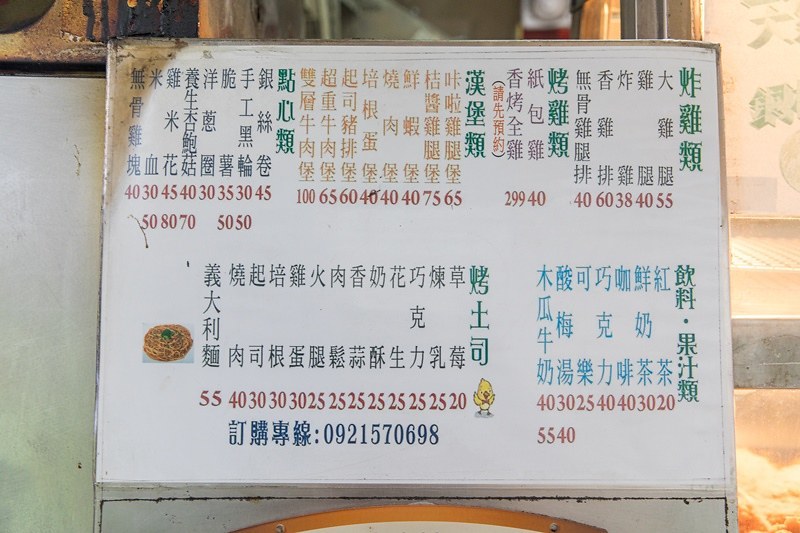 炸雞類
大雞腿 55
雞腿 40
炸雞 38
香雞排 60
無骨雞腿排 40
烤雞類
紙包雞 40
香烤全雞 299
(請先預約)
漢堡類
咔啦雞腿堡 65
桔醬雞腿堡 75
鮮蝦堡 40
燒肉堡 40
培根蛋堡 40
起司豬排堡 60
超重牛肉堡 65
雙層牛肉堡 100
點心類
銀絲卷 45
手工黑輪 30 50
脆薯 35 50
洋蔥圈 30
養生杏鮑菇 40 70
雞米花 45 80
米血 30 50
無骨雞塊 40
飲料·果汁類
紅茶 20
鮮奶茶 30
咖啡 40
巧克力 40
可樂 25
酸梅湯 30 40
木瓜牛奶 40 55
烤土司
草莓 20
煉乳 25
巧克力 25
花生 25
奶酥 25
香蒜 25
肉鬆 25
火腿 25
雞蛋 30
培根 30
起司 30
燒肉 40
義大利麵 55
訂購專線:0921570698